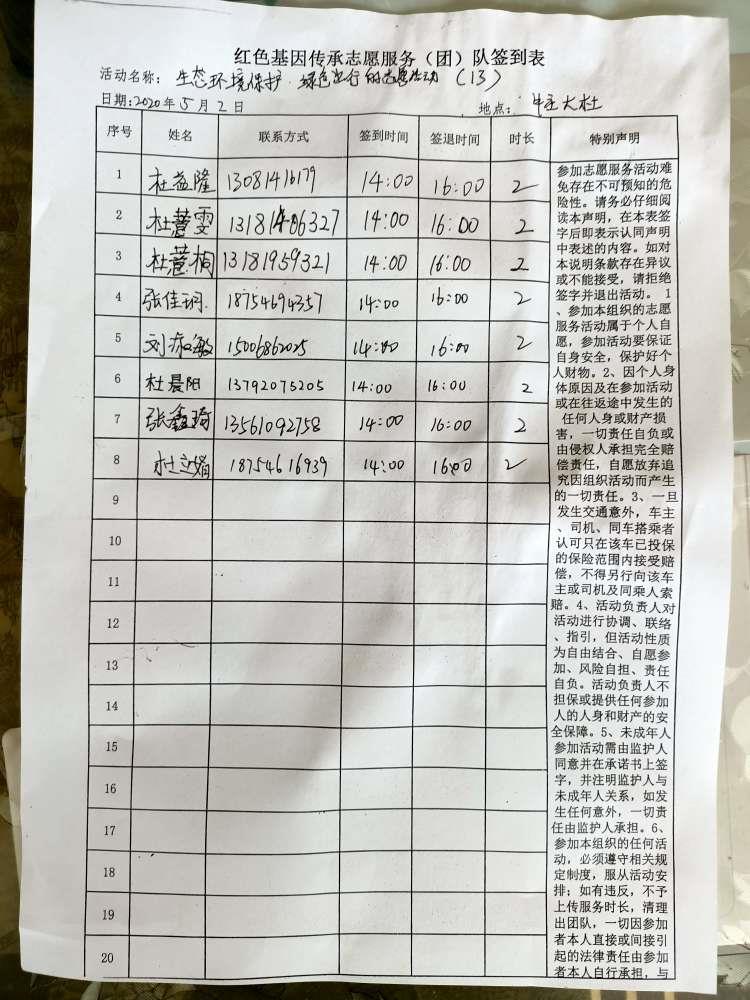 红色基因传承志愿服务（团）队签到表
活动名称：生态环境保护·绿色出行的志愿活动（13）
日期：2020年5月2日 地点：大杜
序号 姓名 联系方式 签到时间 签退时间 时长 特别声明
1 杜益隆 13081416179 14:00 16:00 2
2 杜薏雯 13181406327 14:00 16:00 2
3 杜薏桐 13181959321 14:00 16:00 2
4 张佳 18754694357 14:00 16:00 2
5 刘 敏 15006862025 14:00 16:00 2
6 杜晨阳 13792075205 14:00 16:00 2
7 张鑫琦 13561092758 14:00 16:00 2
8 杜立娟 18754616939 14:00 16:00 2
9
10
11
12
13
14
15
16
17
18
19
20
参加志愿服务活动难
免存在不可预知的危
险性。请务必仔细阅
读本声明，在本表签
字后即表示认同声明
中表述的内容。如对
本说明条款存在异议
或不能接受，请拒绝
签字并退出活动。 1
、参加本组织的志愿
服务活动属于个人自
愿，参加活动要保证
自身安全，保护好个
人财物。2、因个人身
体原因及在参加活动
或在往返途中发生的
任何人身或财产损
害，一切责任自负或
由侵权人承担完全赔
偿责任，自愿放弃追
究因组织活动而产生
的一切责任。3、一旦
发生交通意外，车主
、司机、同车搭乘者
认可只在该车已投保
的保险范围内接受赔
偿，不得另行向该车
主或司机及同乘人索
赔。4、活动负责人对
活动进行协调、联络
、指引，但活动性质
为自由结合、自愿参
加、风险自担、责任
自负。活动负责人不
担保或提供任何参加
人的人身和财产的安
全保障。5、未成年人
参加活动需由监护人
同意并在承诺书上签
字，并注明监护人与
未成年人关系，如发
生任何意外，一切责
任由监护人承担。6、
参加本组织的任何活
动，必须遵守相关规
定制度，服从活动安
排；如有违反，不予
上传服务时长，清理
出团队，一切因参加
者本人直接或间接引
起的法律责任由参加
者本人自行承担，与